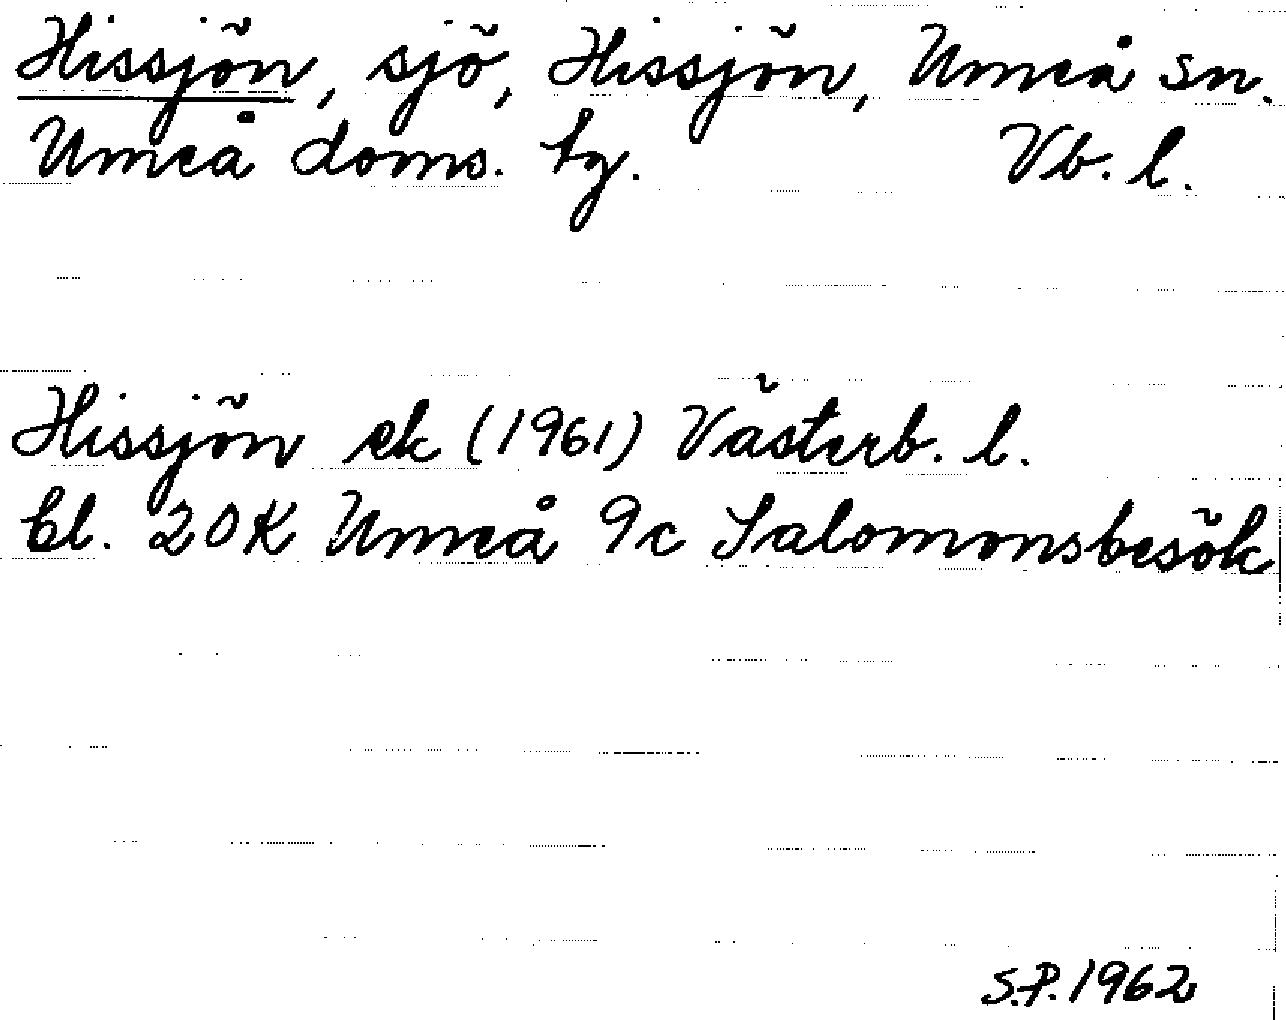 Hissjön, sjö, Hissjön, Umeå sn.
Umeå doms. tg. Vb. l.
Hissjön ek (1961) Västerb. l.
bl. 20K Umeå 9c Salomonsbesök
S.P. 1962